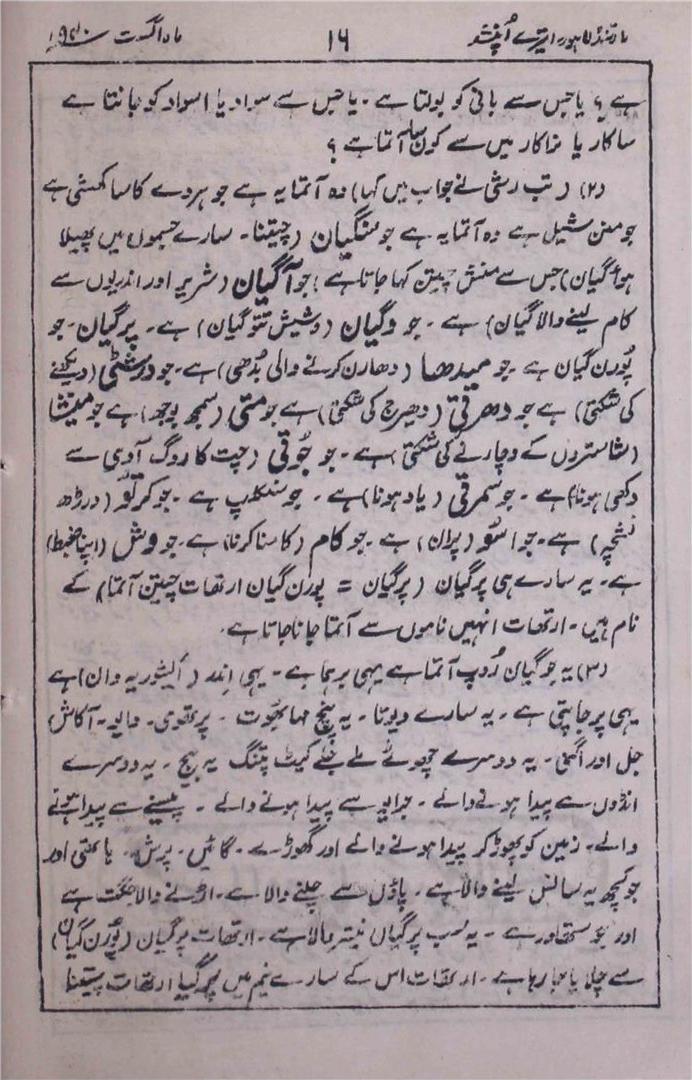 مارتنڈ لاہور ایترے اُپنشد ۱۶ ماہ اگست ۱۹۴۰
ہے ؟ یا جس سے بانی کو بولتا ہے ۔ یا جس سے سواد یا اسواد کو جانتا ہے
ساکار یا نراکار میں سے کون سا آتما ہے ؟
(۲) (تب رشی نے جواب میں کہا) وہ آتما یہ ہے جو ہردے کا ساکھشی ہے
جو من شیل ہے وہ آتما یہ ہے جو سنگیان (چیتنا ۔ سارے جسموں میں پھیلا
ہوا گیان) جس سے منش چیتن کہا جاتا ہے ، جو آگیان (شریر اور اندریوں سے
کام لینے والا گیان) ہے ۔ جو وگیان (وشیش تتو گیان) ہے ۔ پرگیان ۔ جو
پُورن گیان ہے ۔ جو میدھا (دھارن کرنے والی بُدھی) ہے ۔ جو درشٹی (دیکھنے
کی شکتی) ہے جو دھرتی (دھیرج کی شکتی) ہے جو متی (سمجھ بوجھ) ہے جو منیشا
(شاستروں کے وچارنے کی شکتی) ہے ۔ جو جُوتی (چت کا روگ آدی سے
دکھی ہونا) ہے ۔ جو سمرتی (یاد ہونا) ہے ۔ جو سنکلپ ہے ۔ جو کرتُو (دررڈھ
نشچہ) ہے ۔ جو اسُو (پران) ہے ۔ جو کام (کامنا کرنا) ہے ۔ جو وش (اپنا ضبط)
ہے ۔ یہ سارے ہی پرگیان (پرگیان = پورن گیان ارتھات چیتن آتما) کے
نام ہیں ۔ ارتھات انہیں ناموں سے آتما جانا جاتا ہے ۔
(۳) یہ جو گیان رُوپ آتما ہے یہی برہما ہے ۔ یہی اندر (ایشوریہ وان) ہے
یہی پرجاپتی ہے ۔ یہ سارے دیوتا ۔ یہ پنچ مہا بھوت ۔ پرتھوی ۔ وایو ۔ آکاش
جل اور اگنی ۔ یہ دوسرے چھوٹے ملے جلے کیٹ پتنگ یہ بیج ۔ یہ دوسرے
انڈوں سے پیدا ہونے والے ۔ جرایو سے پیدا ہونے والے ۔ پسینے سے پیدا ہونے
والے ۔ زمین کو پھوڑ کر پیدا ہونے والے اور گھوڑے ۔ گائیں ۔ پرش ۔ ہاتھی اور
جو کچھ یہ سانس لینے والا ہے ۔ پاؤں سے چلنے والا ہے ۔ اڑنے والا جگت ہے
اور جو ستھاور ہے ۔ یہ سب پرگیان نیتر والا ہے ۔ ارتھات پرگیان (پُورن گیان)
سے چلایا جا رہا ہے ۔ ارتھات اس کے سارے نیم میں ارتھات